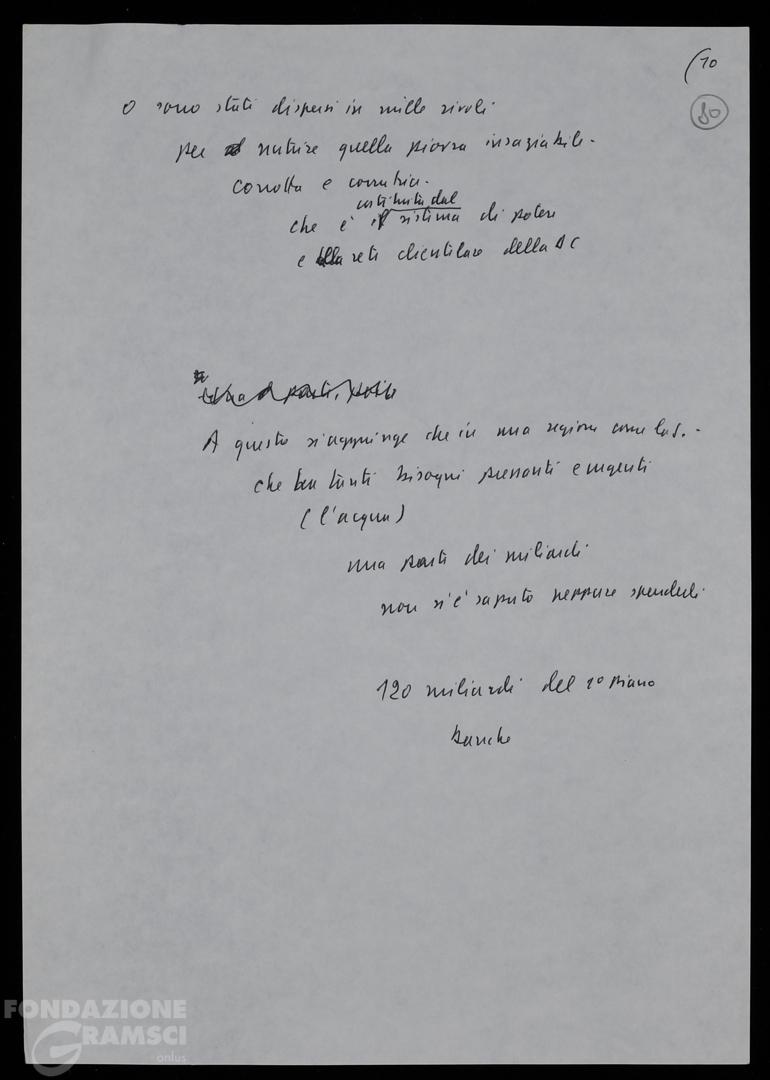 (10
80
o sono stati dispersi in mille rivoli
per nutrire quella piovra insaziabile.
corrotta e corruttrice.
costituita dal
che è il sistema di potere
e reti clientelare della DC
A questo si aggiunge che in una regione come la S. -
che ha tanti bisogni pressanti e urgenti
(l'acqua)
una parte dei miliardi
non s'è saputo neppure spenderli
120 miliardi del 1º piano
banche
FONDAZIONE
GRAMSCI
onlus